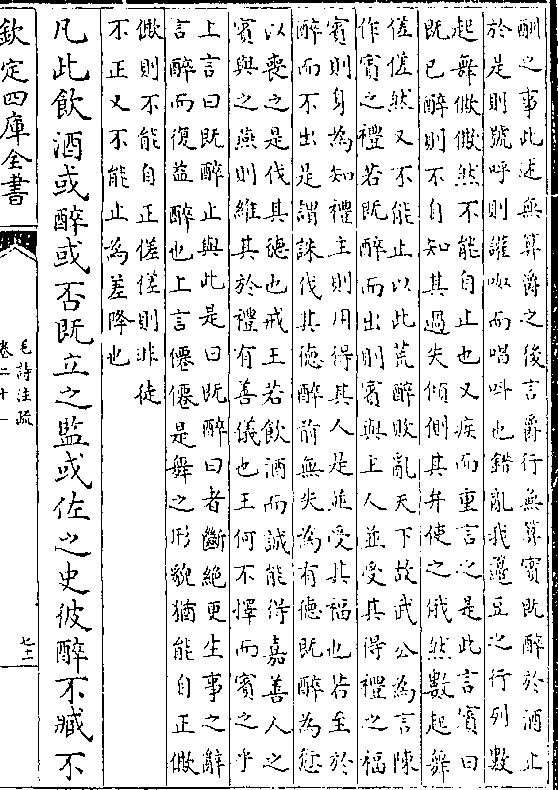 酬之事此述無算爵之後言爵行無算賓既醉於酒止
於是則號呼則讙呶而唱呌也錯亂我籩豆之行列數
起舞僛僛然不能自止也又疾而重言之是此言賓曰
既已醉則不自知其過失傾側其弁使之俄然數起舞
傞傞然又不能止以此荒醉敗亂天下故武公為言陳
作賓之禮若既醉而出則賓與主人並受其得禮之福
賓則身為知禮主則用得其人是並受其福也若至於
醉而不出是謂誅伐其徳醉前無失為有徳既醉為愆
以喪之是伐其徳也戒王若飲酒而誠能得嘉善人之
賓與之燕則維其於禮有善儀也王何不擇而賓之乎
上言曰既醉止與此是曰既醉曰者斷絶更生事之辭
言醉而復益醉也上言僊僊是舞之形貌猶能自正僛
僛則不能自正傞傞則非徒
不正又不能止為差降也
凡此飲酒或醉或否既立之監或佐之史彼醉不臧不
欽定四庫全書
毛詩注疏
卷二十一
七三